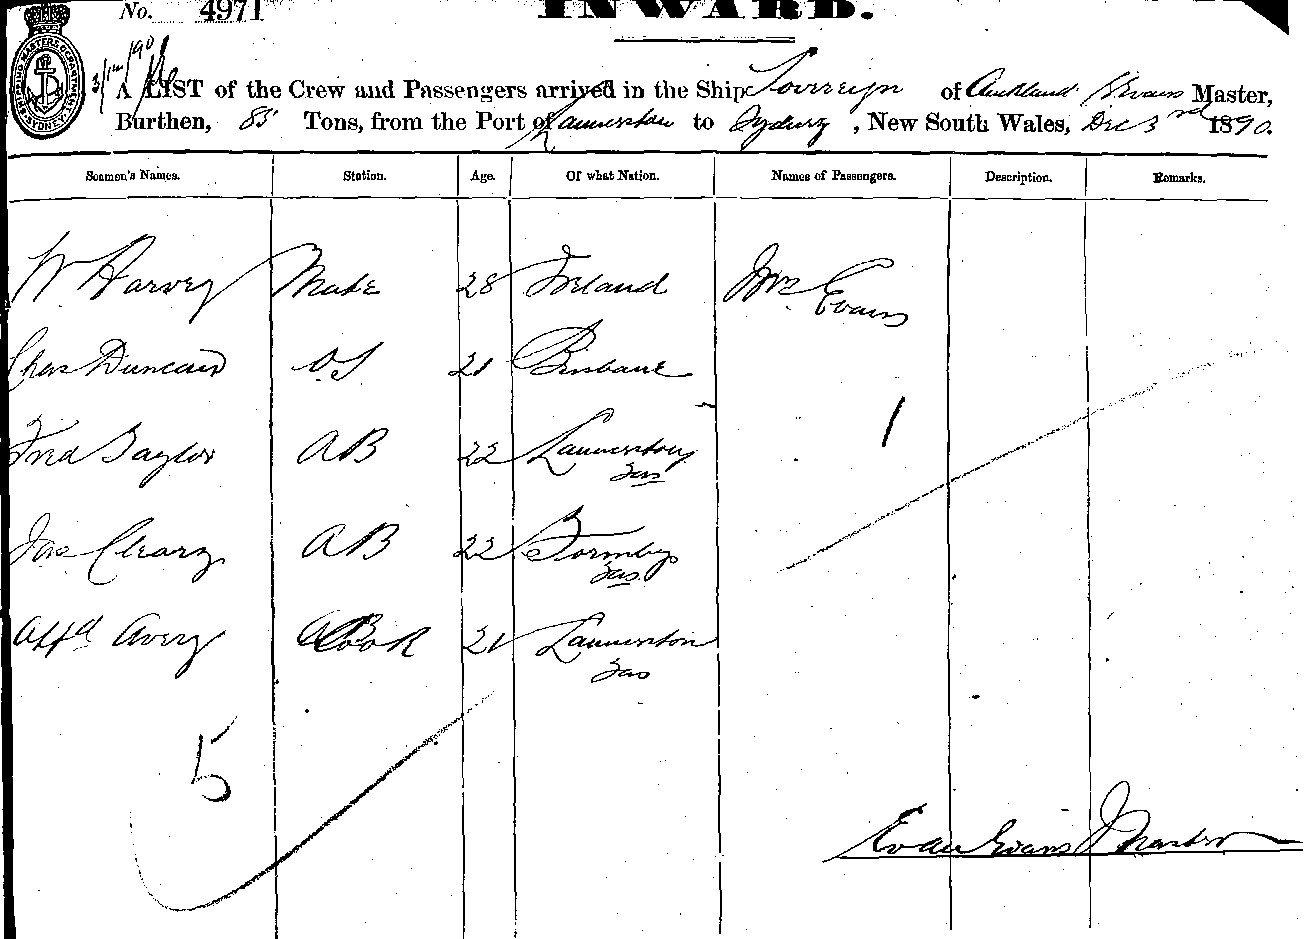 No. 4971 INWARD.
A LIST of the Crew and Passengers arrived in the Ship Sovereign of Auckland Evans Master,
Burthen, 83 Tons, from the Port of Launceston to Sydney, New South Wales, Dec 3rd 1890.
Seamen's Names. Station. Age. Of what Nation. Names of Passengers. Description. Remarks.
W. Harvey Mate 28 Ireland Mrs. Evans
Chas Duncan O.S 21 Brisbane
Fred Taylor AB 22 Launceston Tas 1
Jas Cleary AB 22 Formby Tas
Alfd Avery Cook 21 Launceston Tas
5
Evan Evans Master